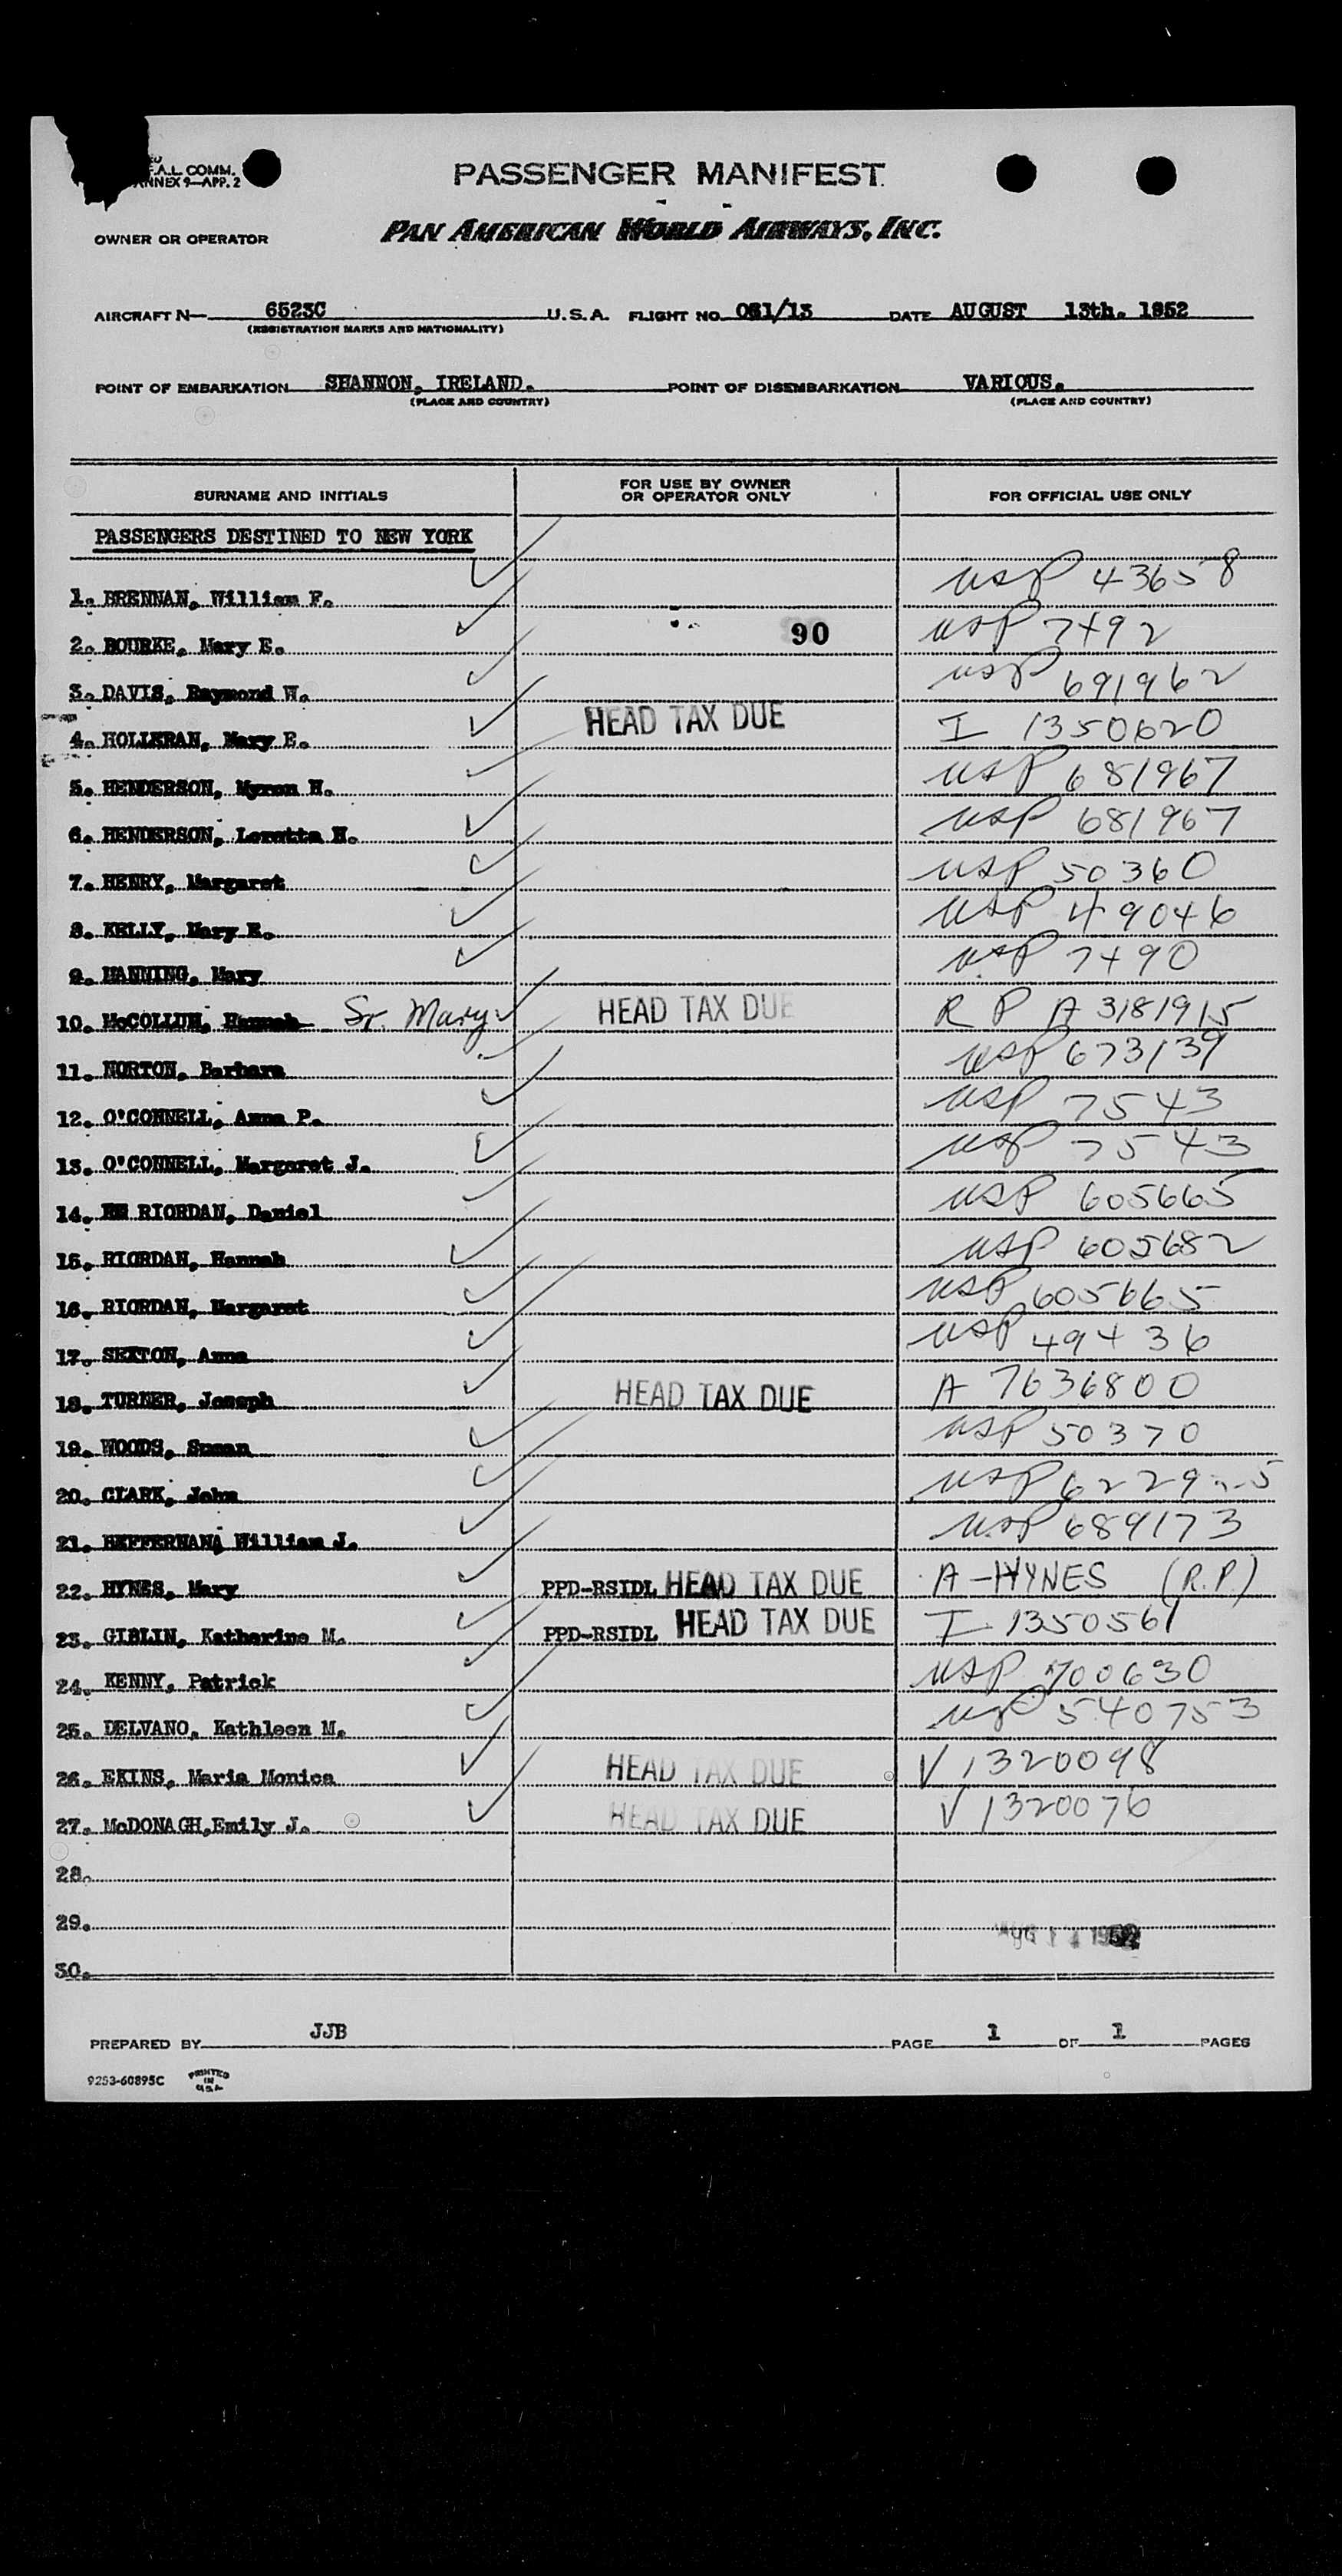 F.A.L. COMM.
ANNEX 9—APP. 2
PASSENGER MANIFEST
OWNER OR OPERATOR PAN AMERICAN WORLD AIRWAYS, INC.
AIRCRAFT N— 6523C U.S.A. FLIGHT NO. 061/13 DATE AUGUST 13th. 1952
(REGISTRATION MARKS AND NATIONALITY)
POINT OF EMBARKATION SHANNON, IRELAND. POINT OF DISEMBARKATION VARIOUS.
(PLACE AND COUNTRY) (PLACE AND COUNTRY)
SURNAME AND INITIALS FOR USE BY OWNER OR OPERATOR ONLY FOR OFFICIAL USE ONLY
PASSENGERS DESTINED TO NEW YORK
1. BRENNAN, William F. USP 43658
2. BOURKE, Mary E. 90 USP 7492
3. DAVIS, Raymond W. USP 691962
4. HOLLERAN, Mary E. HEAD TAX DUE I 1350620
5. HENDERSON, Myron H. USP 681967
6. HENDERSON, Loretta H. USP 681967
7. HENRY, Margaret USP 50360
8. KELLY, Mary E. USP 49046
9. MANNING, Mary USP 7490
10. McCOLLUM, Hannah Sr. Mary HEAD TAX DUE R P A 3181915
11. NORTON, Barbara USP 673139
12. O'CONNELL, Anna P. USP 7543
13. O'CONNELL, Margaret J. USP 7543
14. RIORDAN, Daniel USP 605665
15. RIORDAN, Hannah USP 605682
16. RIORDAN, Margaret USP 605665
17. SEXTON, Anna USP 49436
18. TURNER, Joseph HEAD TAX DUE A 7636800
19. WOODS, Susan USP 50370
20. CLARK, John USP 622925
21. HEFFERNANA William J. USP 689173
22. HYNES, Mary PPD-RSIDL HEAD TAX DUE A-HYNES (R.P)
23. GIBLIN, Katherine M. PPD-RSIDL HEAD TAX DUE I 1350561
24. KENNY, Patrick USP 700630
25. DELVANO, Kathleen M. USP 540753
26. EKINS, Maria Monica HEAD TAX DUE V 1320098
27. McDONAGH,Emily J. HEAD TAX DUE V 1320076
28.
29.
AUG 1952
30.
PREPARED BY JJB PAGE 1 OF 1 PAGES
9253-60895C PRINTED IN U.S.A.